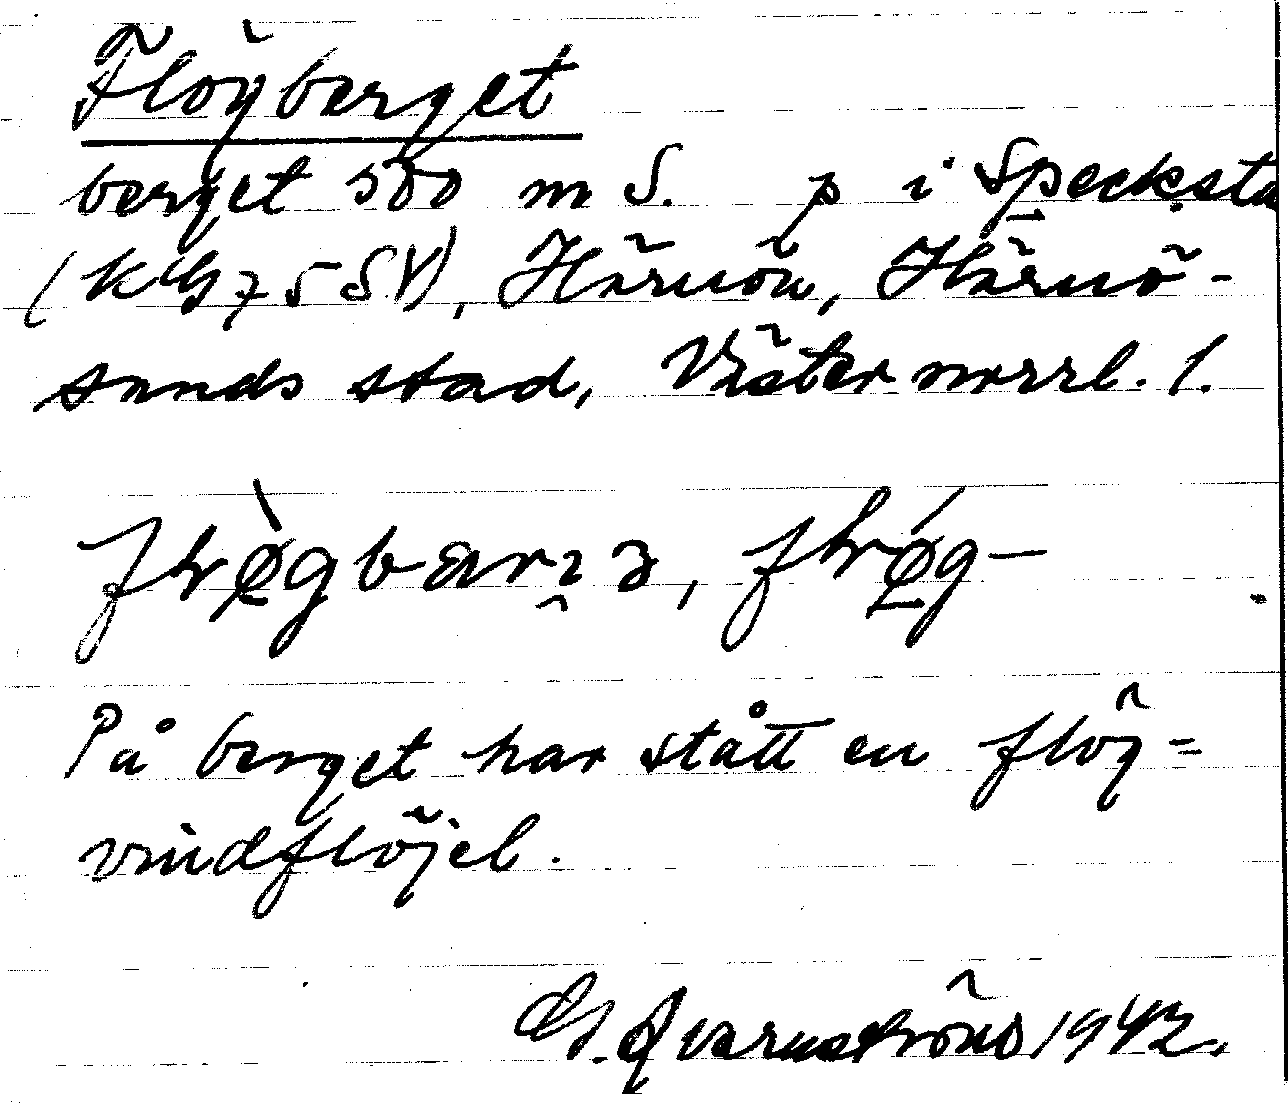 Flögberget
berget 500 m S. p i Specksta
(KG 75 SV), Härnön, Härnö-
sands stad, Västernorrl. l.
På berget har stått en flög =
vindflöjel.
G. Qvarnström 1942.